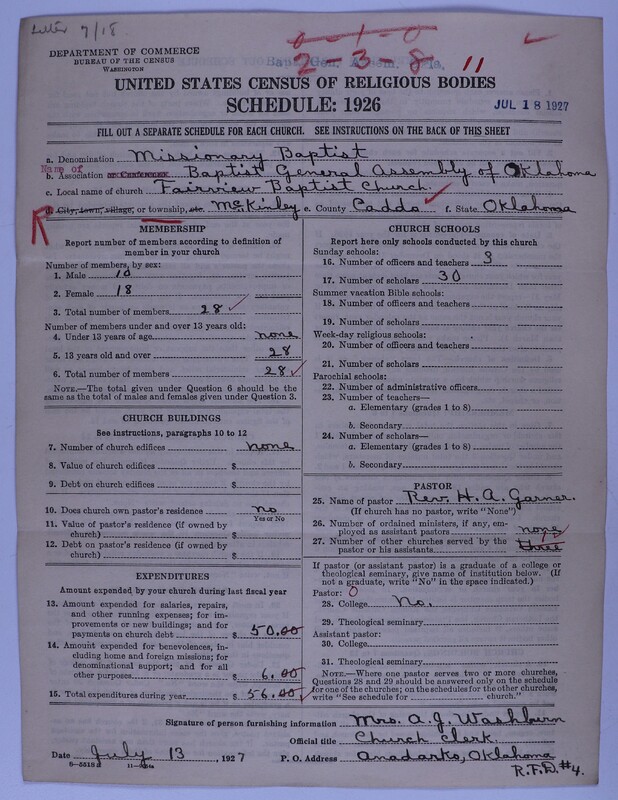 Letter 7/18
0-1-0
2-3-8 11
DEPARTMENT OF COMMERCE
BUREAU OF THE CENSUS
WASHINGTON
UNITED STATES CENSUS OF RELIGIOUS BODIES
SCHEDULE: 1926
JUL 18 1927
FILL OUT A SEPARATE SCHEDULE FOR EACH CHURCH. SEE INSTRUCTIONS ON THE BACK OF THIS SHEET
a. Denomination Missionary Baptist
Name of
b. Association or Conference Baptist General Assembly of Oklahoma
c. Local name of church Fairview Baptist Church.
d. City, town, village, or township, etc. McKinley e. County Caddo f. State Oklahoma
MEMBERSHIP
Report number of members according to definition of
member in your church
Number of members, by sex:
1. Male 10
2. Female 18
3. Total number of members 28
Number of members under and over 13 years old:
4. Under 13 years of age none
5. 13 years old and over 28
6. Total number of members 28
NOTE.—The total given under Question 6 should be
same as the total of males and females given under Question 3.
CHURCH BUILDINGS
See instructions, paragraphs 10 to 12
7. Number of church edifices none
8. Value of church edifices $
9. Debt on church edifices $
10. Does church own pastor's residence? no
Yes or No
11. Value of pastor's residence (if owned by
church) $
12. Debt on pastor's residence (if owned by
church) $
EXPENDITURES
Amount expended by your church during last fiscal year
13. Amount expended for salaries, repairs,
and other running expenses; for im-
provements or new buildings; and for
payments on church debt $ 50.00
14. Amount expended for benevolences, in-
cluding home and foreign missions; for
denominational support; and for all
other purposes $ 6.00
15. Total expenditures during year $ 56.00
CHURCH SCHOOLS
Report here only schools conducted by this church
Sunday schools:
16. Number of officers and teachers 3
17. Number of scholars 30
Summer vacation Bible schools:
18. Number of officers and teachers
19. Number of scholars
Week-day religious schools:
20. Number of officers and teachers
21. Number of scholars
Parochial schools:
22. Number of administrative officers
23. Number of teachers—
a. Elementary (grades 1 to 8)
b. Secondary
24. Number of scholars—
a. Elementary (grades 1 to 8)
b. Secondary
PASTOR
25. Name of pastor Rev. H. A. Garner.
(If church has no pastor, write "None")
26. Number of ordained ministers, if any, em-
ployed as assistant pastors none
27. Number of other churches served by the
pastor or his assistants three
If pastor (or assistant pastor) is a graduate of a college or
theological seminary, give name of institution below. (If
not a graduate, write "No" in the space indicated.)
Pastor: 0
28. College No.
29. Theological seminary
Assistant pastor:
30. College
31. Theological seminary
NOTE.—Where one pastor serves two or more churches,
Questions 28 and 29 should be answered only on the schedule
for one of the churches; on the schedules for the other churches,
write "See schedule for church."
Signature of person furnishing information Mrs. A. J. Washburn
Official title Church Clerk.
Date July 13, 1927 P. O. Address Anadarko, Oklahoma
R.F.D. #4.